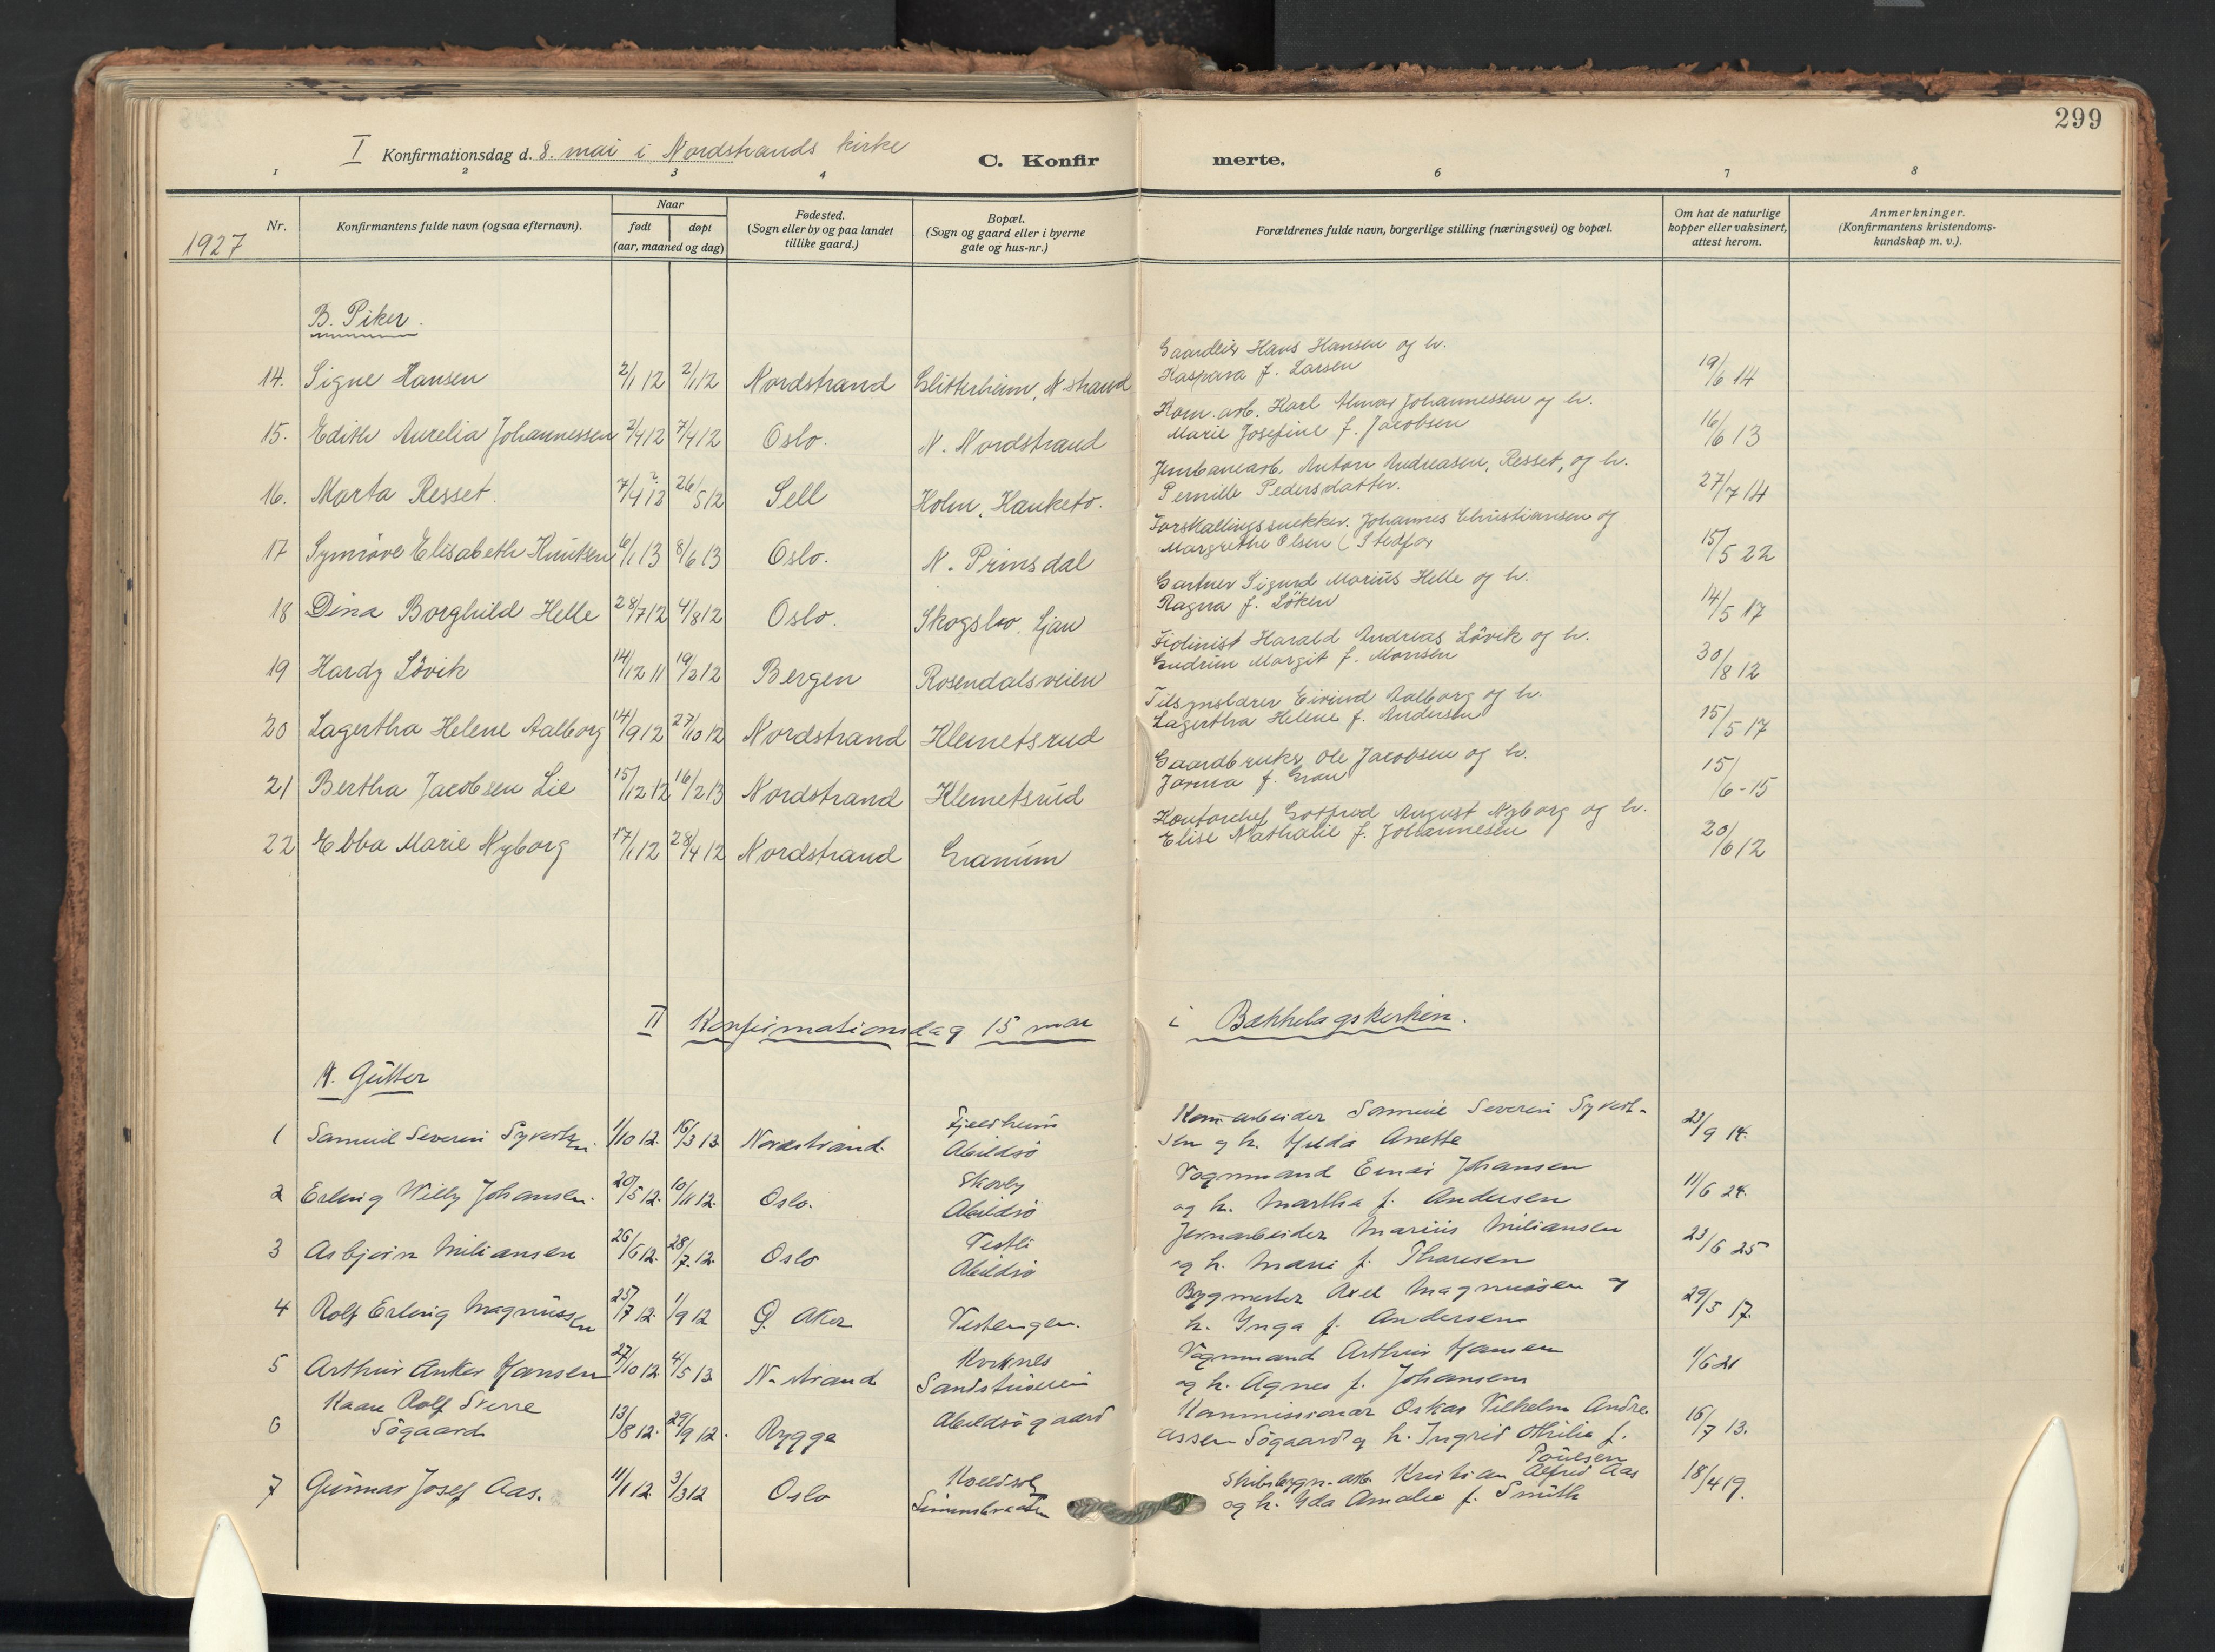 299
I Konfirmationsdag d. 8. mai i Nordstrands kirke
C. Konfir merte.
1 2 3 4 6 7 8
1927
Nr.
Konfirmantens fulde navn (ogsaa efternavn).
Naar
født døpt
(aar, maaned og dag)
Fødested.
(Sogn eller by og paa landet
tillike gaard.)
Bopæl.
(Sogn og gaard eller i byerne
gate og hus-nr.)
Forældrenes fulde navn, borgerlige stilling (næringsvei) og bopæl.
Om hat de naturlige
kopper eller vaksinert,
attest herom.
Anmerkninger.
(Konfirmantens kristendoms-
kundskap m. v.).
B. Piker.
Gaardeier Hans Hansen og h.
14. Signe Hansen 2/1 12 2/1 12 Nordstrand Glitterheim, N. strand Kaspara f. Larsen 19/6 14
Kom. arb. Karl Johannessen og h.
15. Edith Aurelia Johannessen 2/4 12 7/4 12 Oslo. N. Nordstrand Marie Josefine f. Jacobsen 16/6 13
Jernbanearb. Anton Andreasen, Resset, og h.
16. Marta Resset 26/5 12 Sell Holm, Hauketo. Pernille Pedersdatter. 27/7 14
Forskallingssnekker. Johannes Christiansen og
17 Synnöve Elisabeth Knutsen 6/1 13 8/6 13 Oslo. N. Prinsdal Margrethe Olsen (Stedfor 15/5 22
Gartner Sigurd Marius Helle og h.
18 Dina Borghild Helle 28/7 12 4/8 12 Oslo. Skogsbo, Ljan Ragna f. Löken 14/5 17
Fiolinist Harald Andreas Lövik og h.
19 Hardy Lövik 14/12 11 19/2 12 Bergen Rosendalsveien Gudrun Margit f. Monsen 30/8 12
Tilsynslærer Eivind Aalborg og h.
20 Lagertha Helene Aalborg 14/9 12 27/10 12 Nordstrand Klemetsrud Lagertha Helene f. Andersen 15/5 17
Gaardbruker Ole Jacobsen og h.
21 Bertha Jacobsen Lie 15/12 12 16/2 13 Nordstrand Klemetsrud f. Gran 15/6-15
Kontorchef Gotfred August Nyborg og h.
22 Ebba Marie Nyborg 17/1 12 28/4 12 Nordstrand Granum Elise Nathalie f. Johannesen 20/6 12
II Konfirmationsdag 15 mai i Bækkelagskirken.
A. Gutter
Fjeldheim Kom-arbeider Samuel Severin Syvert-
1 Samuel Severin Syvertsen. 1/10 12. 16/3 13 Nordstrand. Abildsö sen og h. Hulda Anette 23/9 14.
Skovly Vognmand Einar Johansen
2 Erling Willy Johansen. 20/5 12. 10/11 12. Oslo. Abildsö og h. Martha f. Andersen 11/6 24.
Vestli Jernarbeider Marius Miliansen
3 Asbjørn Miliansen 26/6 12. 28/7. 12. Oslo Abildsö og h. Marie f. Thoresen 23/6 25
Bygmester Axel Magnussen og
4 Rolf Erling Magnussen 25/7 12. 1/9 12 Ø. Aker Vestengen. h. Ynga f. Andersen 29/5 17.
Vognmand Arthur Hansen
5 Arthur Anker Hansen 27/10 12 4/5 13 N. strand og h. Agnes f. Johansen 1/6 21
Kaare Rolf Sverre Abildsögaard Kommissionær Oskar Vilhelm Andre
6 Sögaard 13/8 12. 29/9 12. Rygge assen Sögaard og h. Ingrid Othilie f. Poulsen 16/7 13.
Skibsbygn. arb. Kristian Alfred Aas
7 Gunnar Josef Aas. 11/1 12. 3/3 12 Oslo og h. Yda Amalie f. Smith 18/4 19.